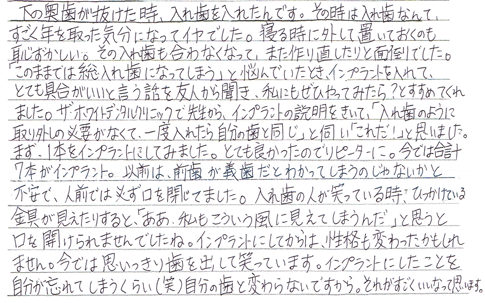 下の奥歯が抜けた時、入れ歯を入れたんです。その時は入れ歯なんて、
すごく年を取った気分になってイヤでした。寝る時に外して置いておくのも
恥ずかしい。その入れ歯も合わなくなって、また作り直したりと面倒でした。
「このままでは総入れ歯になってしまう」と悩んでいたとき、インプラントを入れて、
とても具合がいいと言う話を友人から聞き、私にもぜひやってみたら?とすすめてくれ
ました。ザ・ホワイトデンタルクリニックで先生から、インプラントの説明をきいて、「入れ歯のように
取り外しの必要がなくて、一度入れたら自分の歯と同じ」と伺い「これだ!」と思いました。
まず、1本をインプラントにしてみました。とても良かったのでリピーターに。今では合計
7本がインプラント。以前は、前歯が義歯だとわかってしまうのじゃないかと
不安で、人前では必ず口を閉じてました。入れ歯の人が笑っている時、ひっかけている
金具が見えたりすると、「ああ、私もこういう風に見えてしまうんだ」と思うと
口を開けられませんでしたね。インプラントにしてからは、性格も変わったかもしれ
ません。今では思いっきり歯を出して笑っています。インプラントにしたことを
自分が忘れてしまうくらい(笑)自分の歯と変わらないですから。それがすごくいいなって思います。